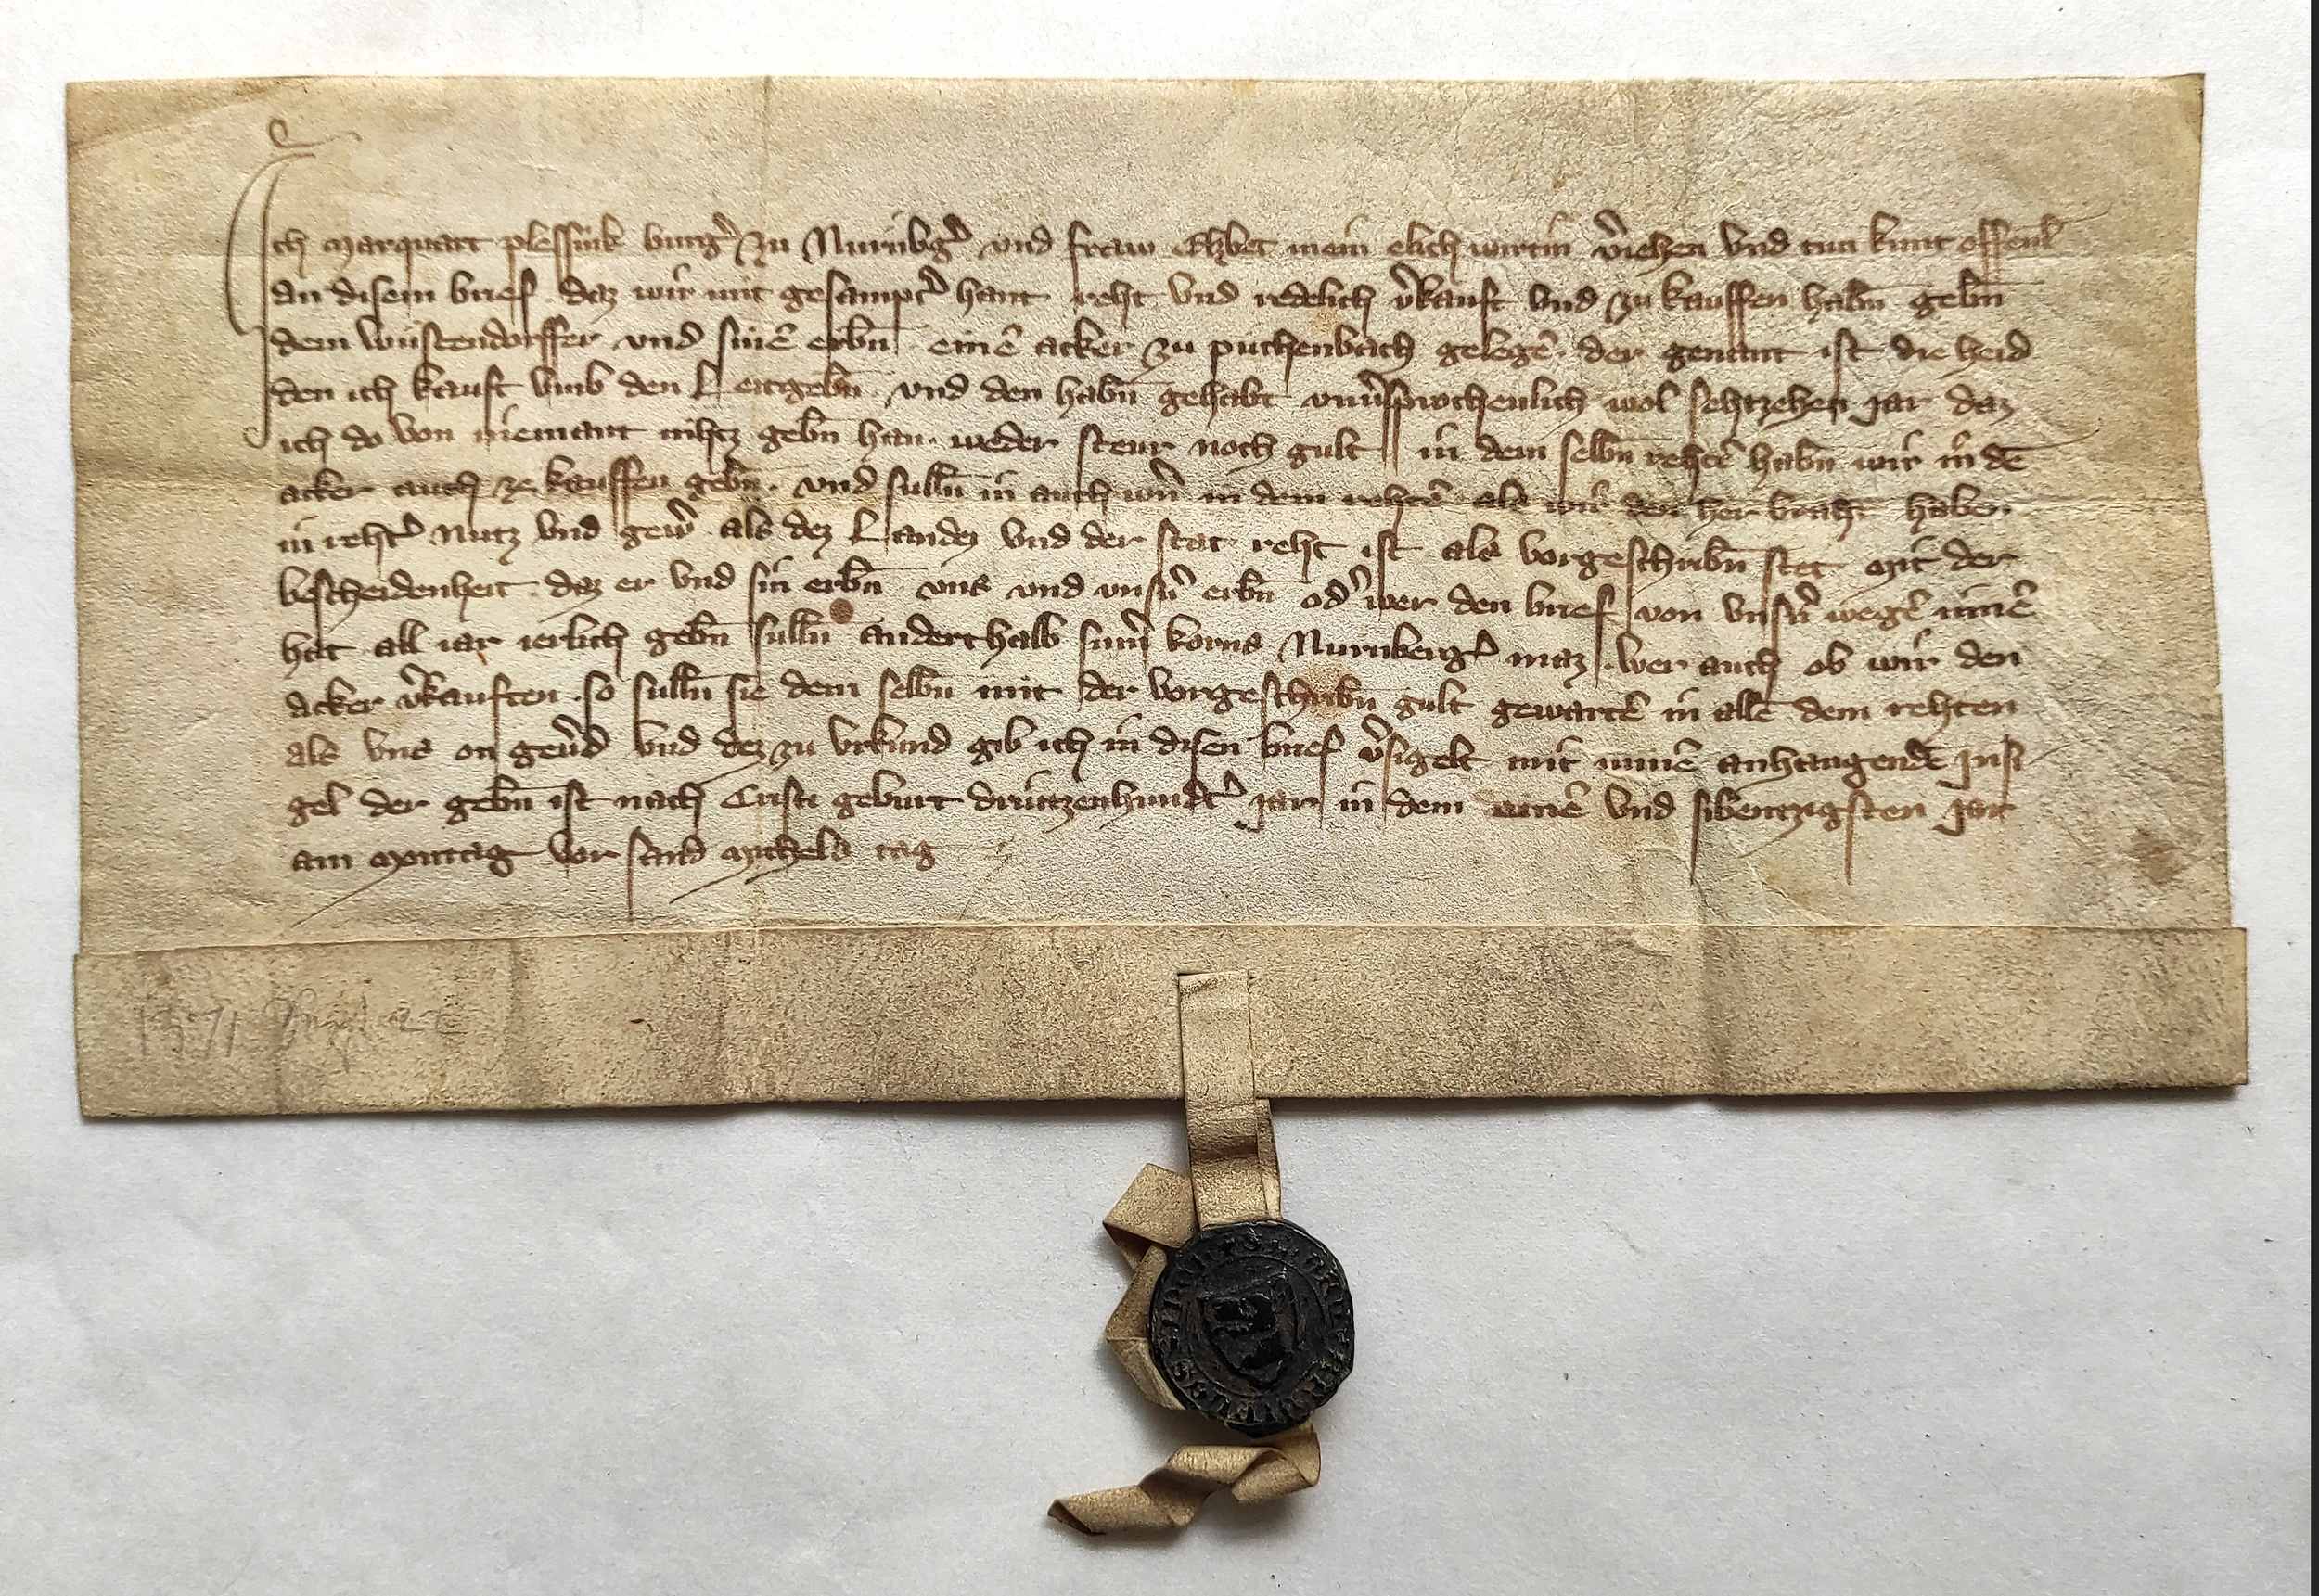 Ich Marquart plessink burg̉ zu Nurinbg̉ vnd fraw Elzbet mein elich wirtin v̉iehen vnd tun kunt offenl̄
an disem brief . daz wir mit gesampt̉ hant reht vnd redelich v̉kauft vnd zu kauffen habn̄ gebn̄
dem wustendorffer vnd sinē erbn̄ . einē acker zu puchenbach gelegē . der genant ist die heid
den ich kauft vmb den Leitgebn̄ . vnd den habn̄ gehabt vnv̉sprochenlich wol sehtzehen jar daz
ich do von niemant nihtz gebn̄ han . weder steur noch gult in dem selbn̄ rehtē habn̄ wir in dē
acker auch ze kauffen gebn̄ . vnd sulln̄ in auch wern̉ in dem rehtē als wir den her braht haben
in reht̉ nutz vnd gew̉ als dez Landez vnd der stat reht ist als vorgeschribn̄ stet mit der
bescheidenheit . daz er vnd sin erbn̄ vns vnd vnsn̉ erbn̄ od̉ wer den brief von vnsn̉ wegē innē
hat all iar ierlich gebn̄ sulln̄ anderthalb sum̉ korns Nurnberg̉ maz . wer auch ob wir den
acker v̉kauften . so sulln̄ sie dem selbn̄ mit der vorgeschribn̄ gult gewartē in allē dem rehten
als vns on gev̉d vnd dez zu vrkund gib ich in disen brief v̉sigelt mit minē anhangendē jnsi
gel der gebn̄ ist nach Cristi geburt driutzenhundt̉ jar in dem einē vnd sibentzigsten jar
am montag vor sand michels tag
1371